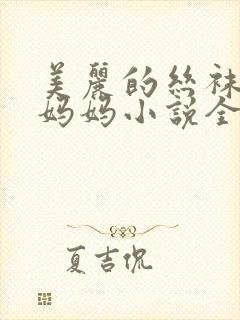 美麗的絲袜
妈妈小説全
夏吉侃